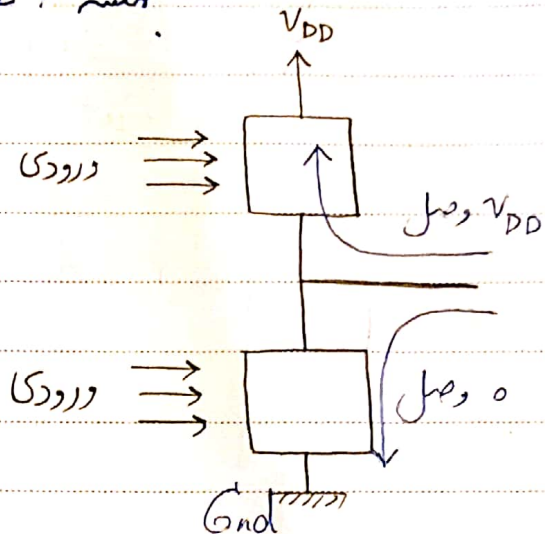 V_DD
ورودی
وصل V_DD
ورودی
وصل 0
Gnd